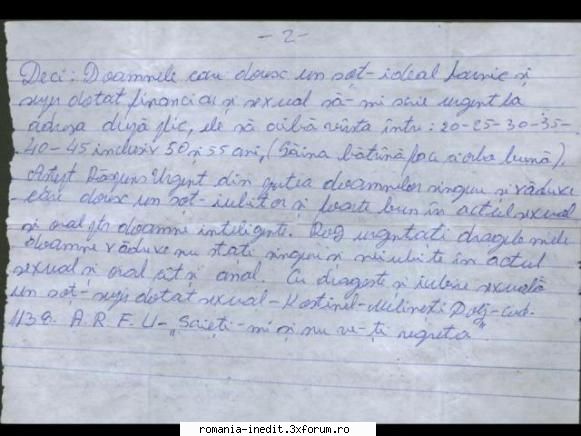 - 2 -
Deci: Doamnele care doresc un soț-ideal farnic și
super dotat financiar și sexual să-mi scrie urgent la
adresa după plic, ele să aibă vârsta între: 20-25-30-35-
40-45 inclusiv 50 și 55 ani, (Găina bătrînă face ciorba bună).
Aștept Răspuns Urgent din partea doamnelor singure și văduve
care doresc un soț-iubitor și foarte bun în actul sexual
și oral ptr doamne inteligente. Rog urgentați dragele mele
doamne văduve nu stați singure și neiubite în actul
sexual și oral cît și anal. Cu dragoste și iubire sexuală
un soț super dotat sexual - Kostinel - Milinești Dolj - cod.
1138. A.R.F.U - „Scrieți-mi și nu ve-ți regreta"
romania-inedit.3xforum.ro